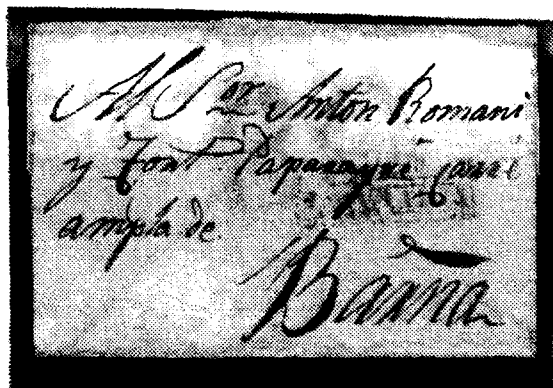 Al Sor Anton Romani
y Font. Paparayre carre
ampla de
Barna